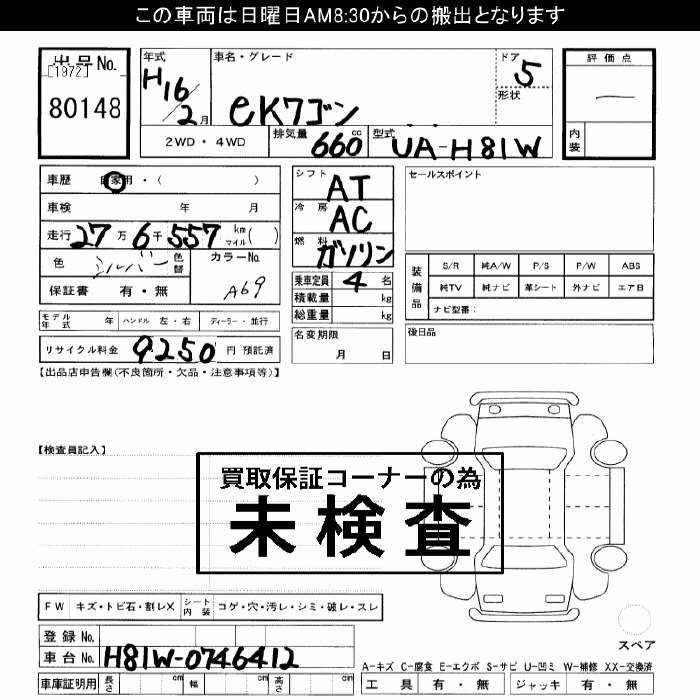 この車両は日曜日AM8:30からの搬出となります
出品No.
[1972]
80148
年式
H16/2月
車名・グレード
eKワゴン
ドア 5
形状
評価点
―
内装
2WD・4WD
排気量 660 cc
型式 UA-H81W
車歴 自家用・( )
車検 年 月
走行 27万 6千 557 km マイル( )
色 シルバー 色替
カラーNo. A69
保証書 有・無
モデル年式 年 ハンドル 左・右 ディーラー・並行
リサイクル料金 9250 円 預託済
シフト AT
冷房 AC
燃料 ガソリン
乗車定員 4 名
積載量 kg
総重量 kg
名変期限
月 日
セールスポイント
装備品
S/R 純A/W P/S P/W ABS
純TV 純ナビ 革シート 外ナビ エアB
ナビ型番:
後日品
【出品店申告欄(不良箇所・欠品・注意事項等)】
【検査員記入】
買取保証コーナーの為
未検査
FW キズ・トビ石・割レX シート内装 コゲ・穴・汚レ・シミ・破レ・スレ
登録No.
車台No. H81W-0746412
車庫証明用 長さ cm 幅 cm 高さ cm
スペア
A-キズ C-腐食 E-エクボ S-サビ U-凹ミ W-補修 XX-交換済
工具 有・無 ジャッキ 有・無